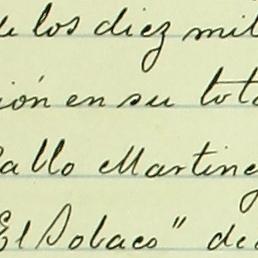 de los diez mil
ión en su tota
allo Martine
El Sobaco" de